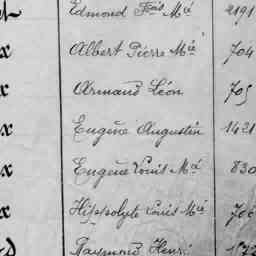 Edmond Fçois Mie 2191
x Albert Pierre Mie 704
x Armand Léon 705
x Eugène Augustin 1421
x Eugène Louis Mie 830
x Hippolyte Louis Mie 706
Raymond Henri